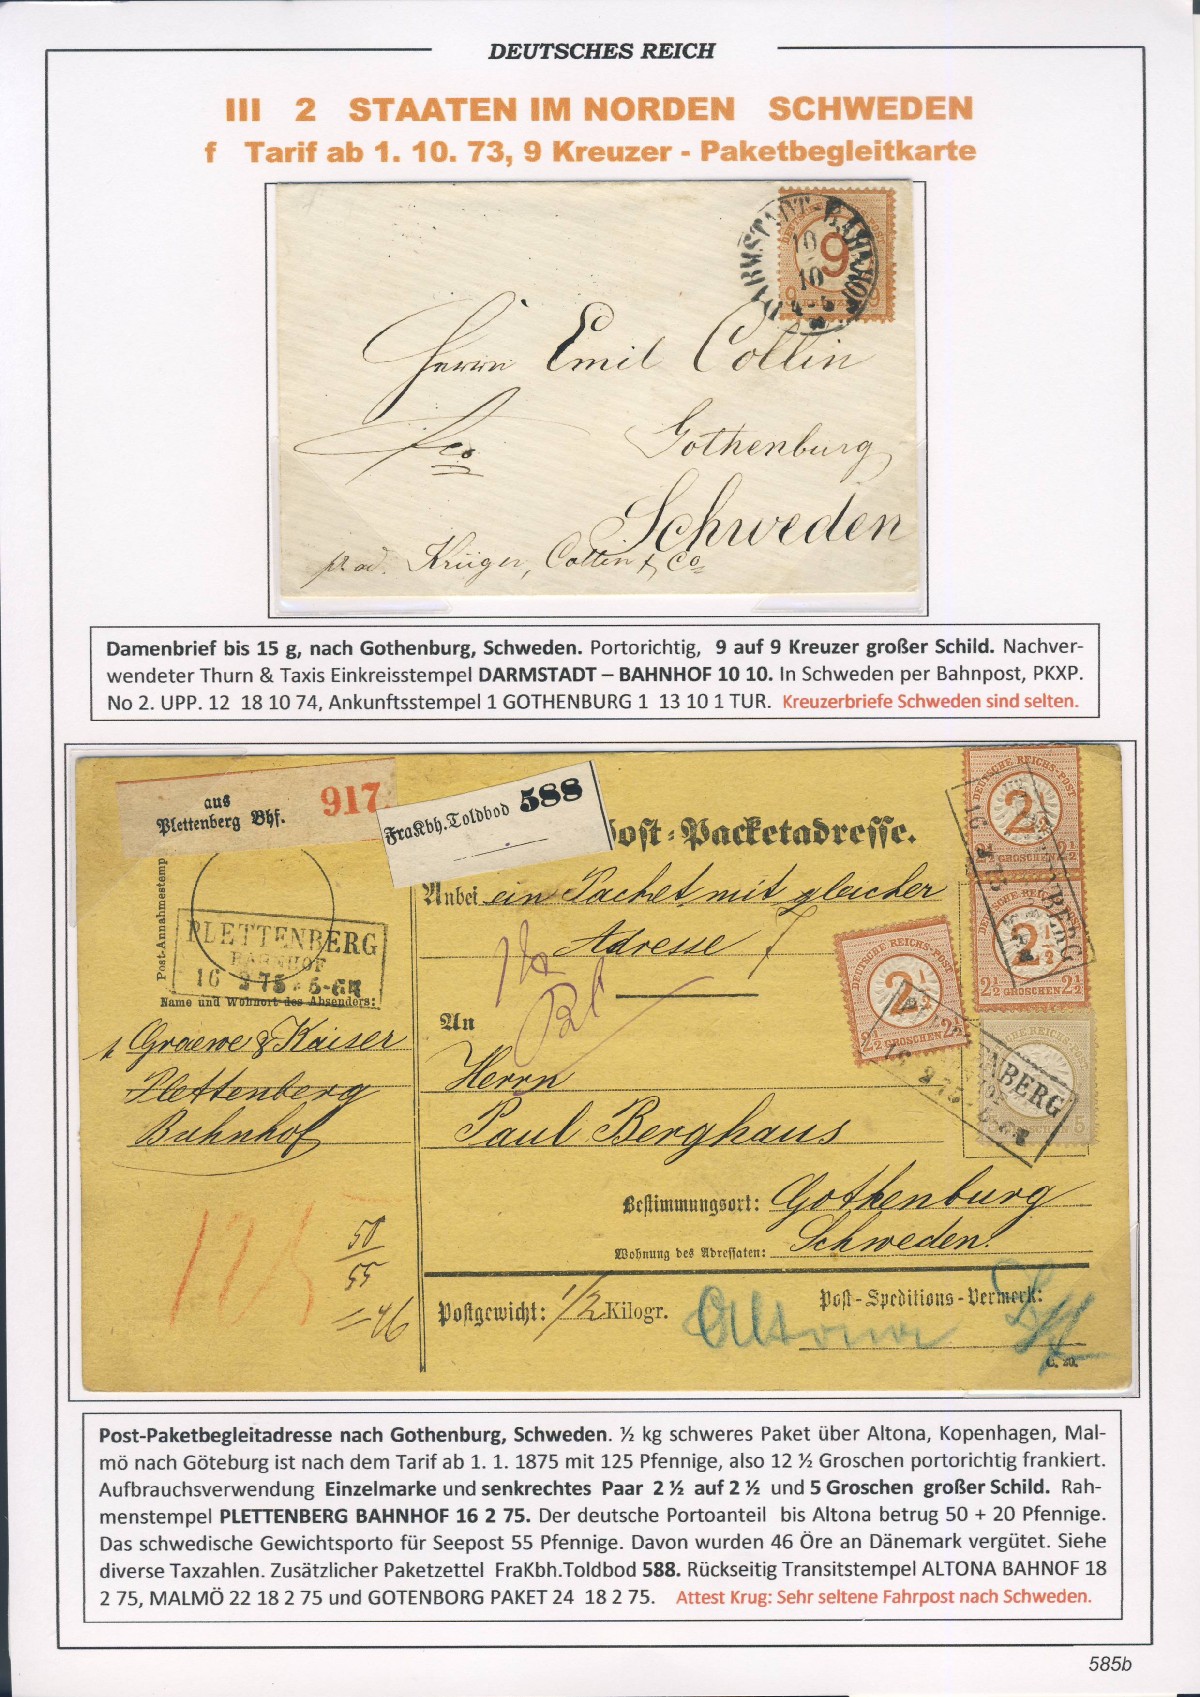 DEUTSCHES REICH
III 2 STAATEN IM NORDEN SCHWEDEN
f Tarif ab 1. 10. 73, 9 Kreuzer - Paketbegleitkarte
DARMSTADT-BAHNHOF
10
10
4-5
9
9 9
Herrn Emil Collin
fco
Gothenburg
Schweden
p. ad. Krüger, Collin & Co
Damenbrief bis 15 g, nach Gothenburg, Schweden. Portorichtig, 9 auf 9 Kreuzer großer Schild. Nachver-
wendeter Thurn & Taxis Einkreisstempel DARMSTADT – BAHNHOF 10 10. In Schweden per Bahnpost, PKXP.
No 2. UPP. 12 18 10 74, Ankunftsstempel 1 GOTHENBURG 1 13 10 1 TUR. Kreuzerbriefe Schweden sind selten.
aus
Plettenberg Bhf. 917
FraKbh.Toldbod 588
Post-Packetadresse.
DEUTSCHE REICHS-POST
2½
2½ GROSCHEN 2½
2½
2½ GROSCHEN 2½
DEUTSCHE REICHS-POST
2½
2½ GROSCHEN 2½
Post-Annahmestempel
PLETTENBERG
BAHNHOF
16 2 75 5-6N
Anbei ein Packet mit gleicher
Adresse
Name und Wohnort des Absenders:
Graewe & Kaiser
Plettenberg
Bahnhof
An
Herrn
Paul Berghaus
Bestimmungsort: Gothenburg
Wohnung des Adressaten: Schweden.
125
50
55
= 46
Postgewicht: 1/2 Kilogr.
Post-Speditions-Vermerk:
Altona
C. 20.
Post-Paketbegleitadresse nach Gothenburg, Schweden. ½ kg schweres Paket über Altona, Kopenhagen, Mal-
mö nach Göteburg ist nach dem Tarif ab 1. 1. 1875 mit 125 Pfennige, also 12 ½ Groschen portorichtig frankiert.
Aufbrauchsverwendung Einzelmarke und senkrechtes Paar 2 ½ auf 2 ½ und 5 Groschen großer Schild. Rah-
menstempel PLETTENBERG BAHNHOF 16 2 75. Der deutsche Portoanteil bis Altona betrug 50 + 20 Pfennige.
Das schwedische Gewichtsporto für Seepost 55 Pfennige. Davon wurden 46 Öre an Dänemark vergütet. Siehe
diverse Taxzahlen. Zusätzlicher Paketzettel FraKbh.Toldbod 588. Rückseitig Transitstempel ALTONA BAHNOF 18
2 75, MALMÖ 22 18 2 75 und GOTENBORG PAKET 24 18 2 75. Attest Krug: Sehr seltene Fahrpost nach Schweden.
585b